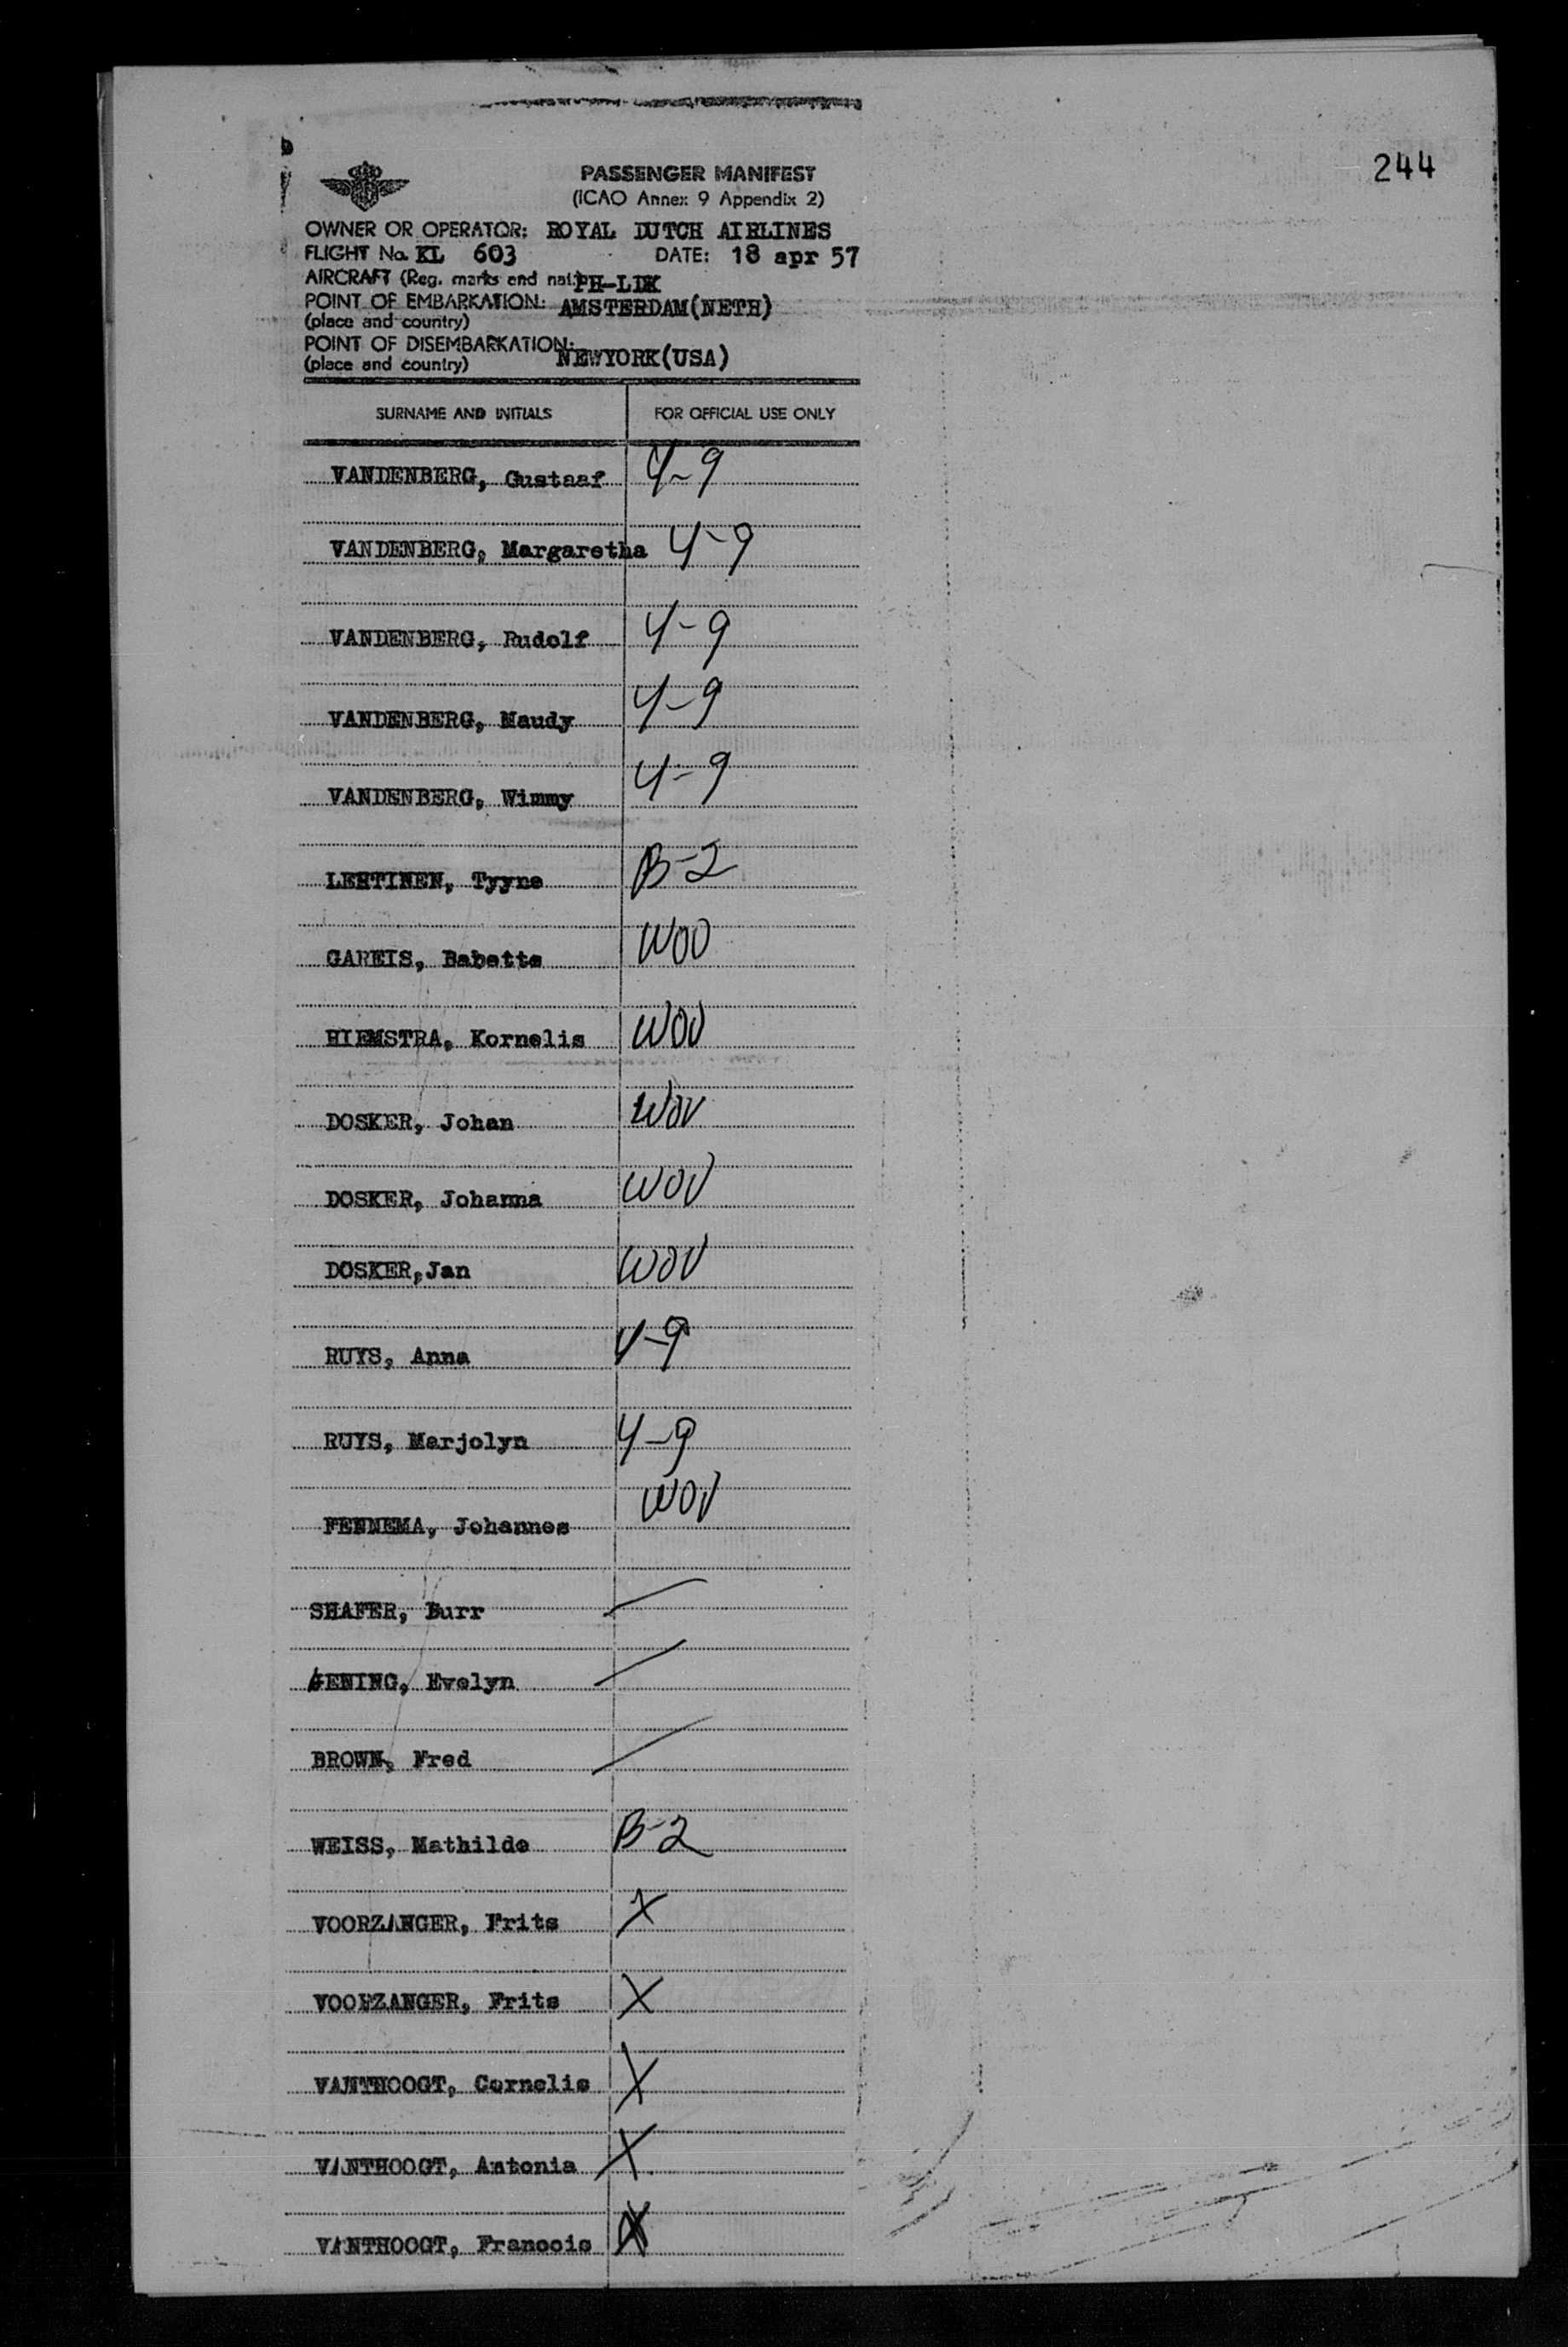 244
PASSENGER MANIFEST
(ICAO Annex 9 Appendix 2)
OWNER OR OPERATOR: ROYAL DUTCH AIRLINES
FLIGHT No. KL 603 DATE: 18 apr 57
AIRCRAFT (Reg. marks and nat.) PH-LDK
POINT OF EMBARKATION: AMSTERDAM(NETH)
(place and country)
POINT OF DISEMBARKATION: NEWYORK(USA)
(place and country)
SURNAME AND INITIALS FOR OFFICIAL USE ONLY
VANDENBERG, Gustaaf 4-9
VANDENBERG, Margaretha 4-9
VANDENBERG, Rudolf 4-9
VANDENBERG, Maudy 4-9
VANDENBERG, Wimmy 4-9
LEHTINEN, Tyyne B-2
GAREIS, Babette WOV
HIEMSTRA, Kornelis WOV
DOSKER, Johan WOV
DOSKER, Johanna WOV
DOSKER,Jan WOV
RUYS, Anna 4-9
RUYS, Marjolyn 4-9
FENNEMA, Johannes WOV
SHAFER, Burr
Evelyn
BROWN, Fred
WEISS, Mathilde B-2
VOORZANGER, Frits X
VOORZANGER, Frits X
VANTHOOGT, Cornelis X
VANTHOOGT, Antonia X
VANTHOOGT, Francois X